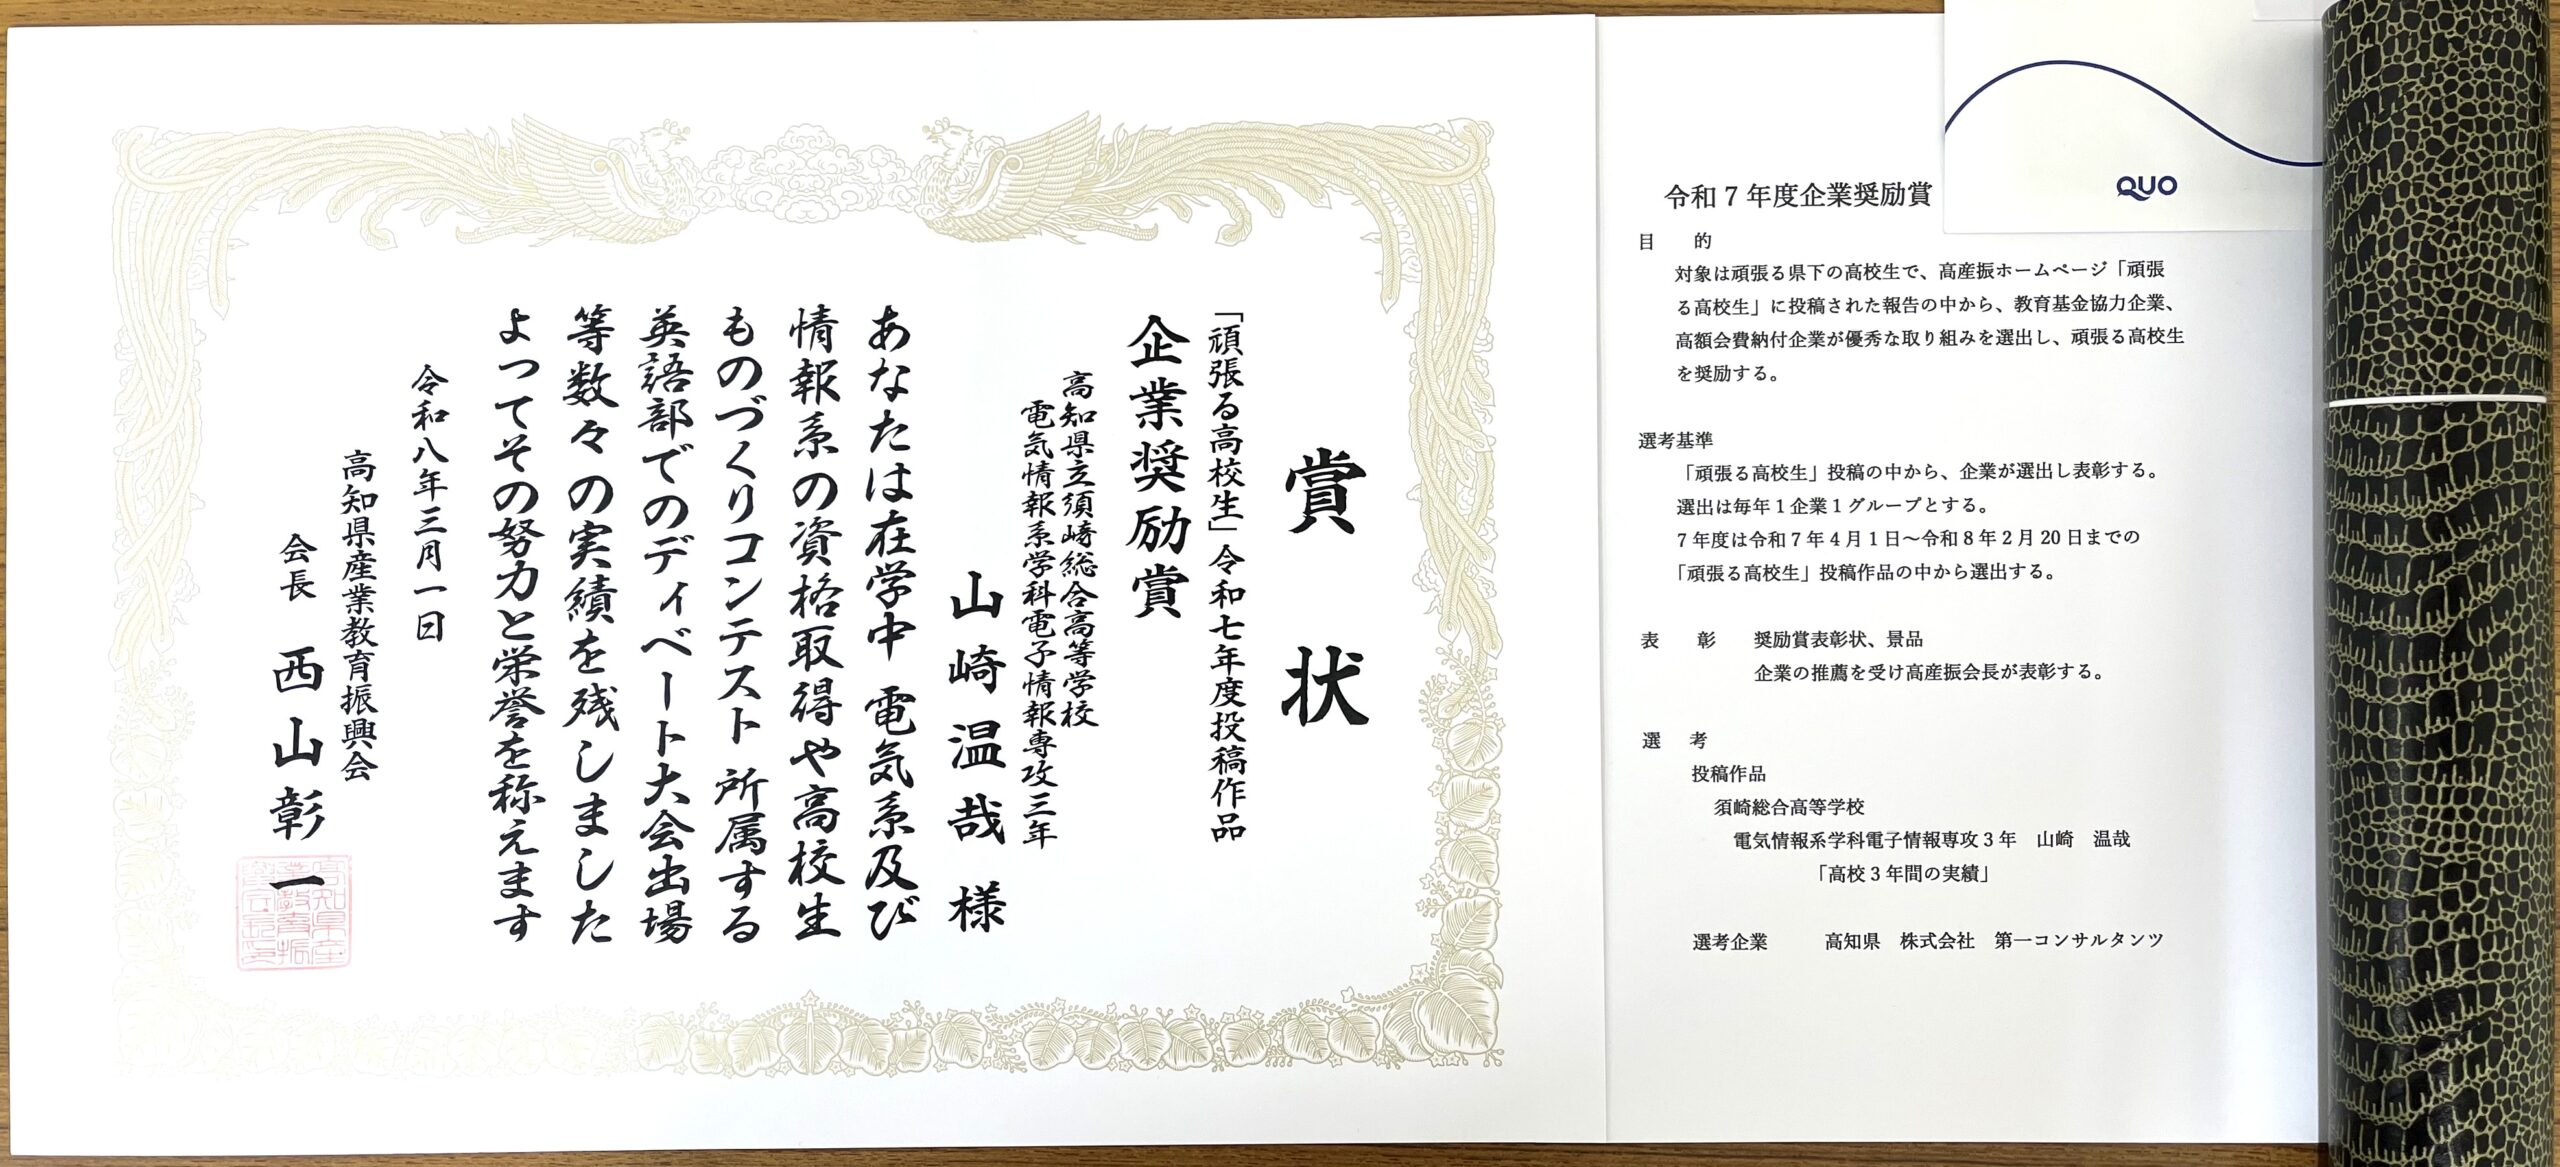 賞状
「頑張る高校生」令和七年度投稿作品
企業奨励賞
高知県立須崎総合高等学校
電気情報系学科電子情報専攻三年
山崎温哉様
あなたは在学中 電気系及び
情報系の資格取得や高校生
ものづくりコンテスト 所属する
英語部でのディベート大会出場
等数々の実績を残しました
よってその努力と栄誉を称えます
令和八年三月一日
高知県産業教育振興会
会長 西山彰一
QUO
令和7年度企業奨励賞
目 的
対象は頑張る県下の高校生で、高産振ホームページ「頑張
る高校生」に投稿された報告の中から、教育基金協力企業、
高額会費納付企業が優秀な取り組みを選出し、頑張る高校生
を奨励する。
選考基準
「頑張る高校生」投稿の中から、企業が選出し表彰する。
選出は毎年1企業1グループとする。
7年度は令和7年4月1日～令和8年2月20日までの
「頑張る高校生」投稿作品の中から選出する。
表 彰 奨励賞表彰状、景品
企業の推薦を受け高産振会長が表彰する。
選 考
投稿作品
須崎総合高等学校
電気情報系学科電子情報専攻3年 山崎 温哉
「高校3年間の実績」
選考企業 高知県 株式会社 第一コンサルタンツ